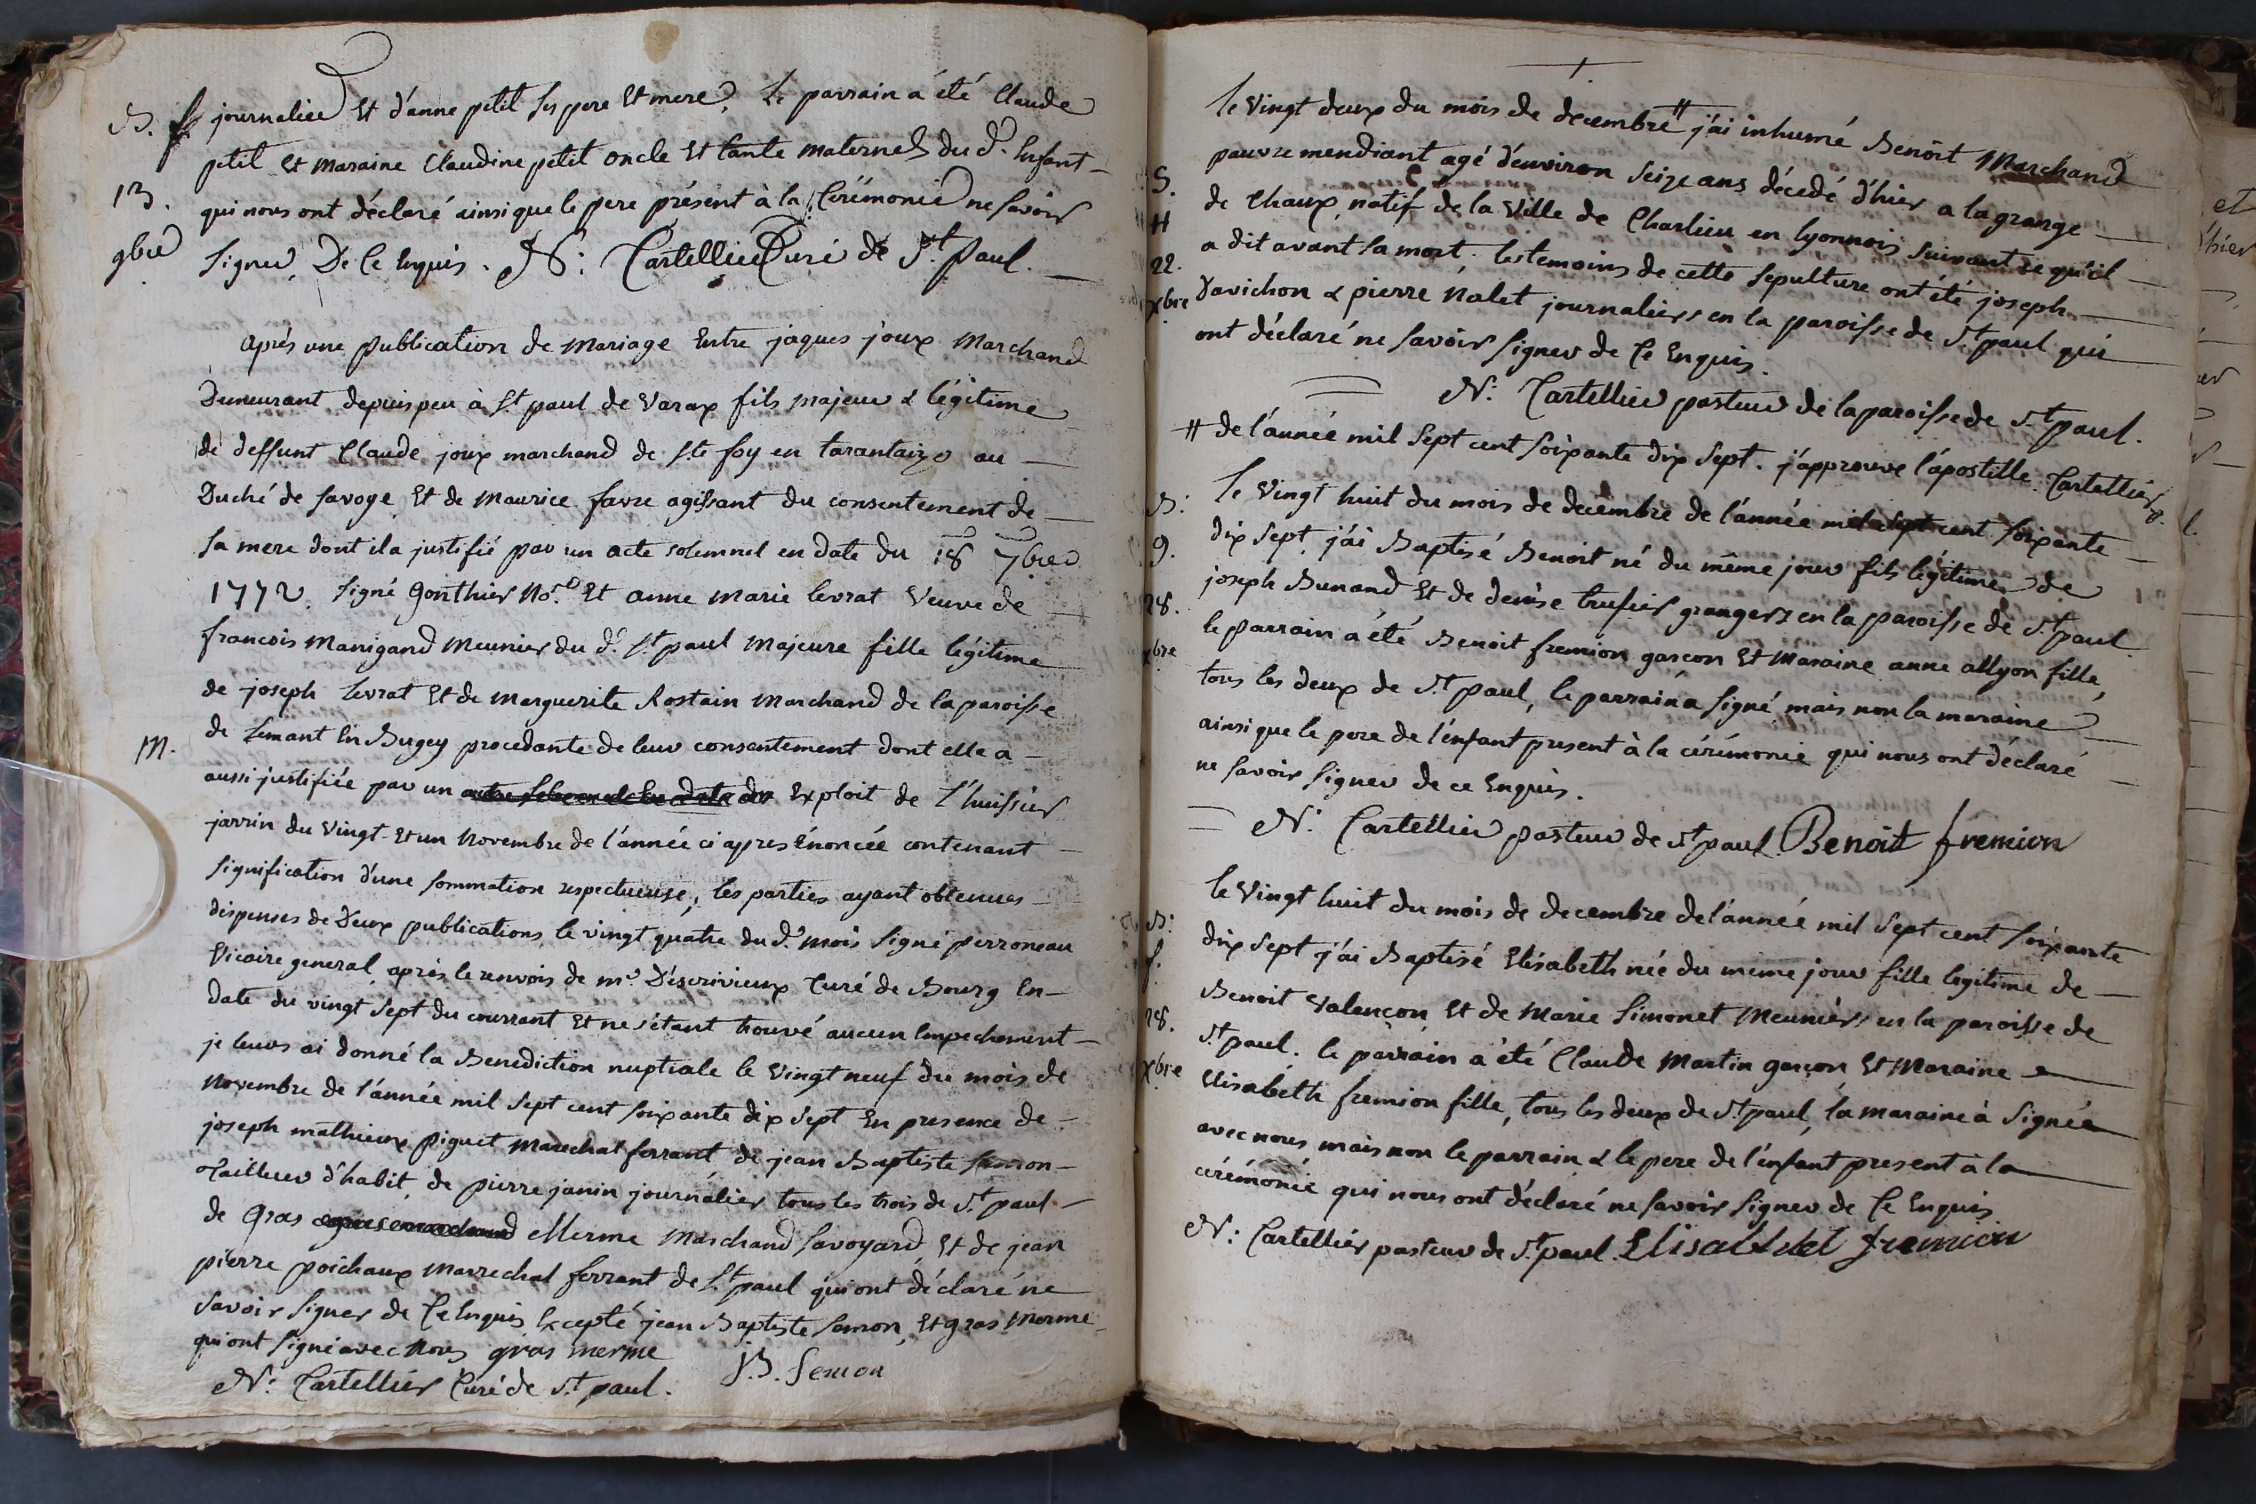 B. f journalier Et d'anne petit ses pere Et mere, Le parrain a été Claude
petit Et Maraine Claudine petit oncle Et tante maternels du d. Enfant
13. qui nous ont déclaré ainsi que le pere présent à la Cérémonie ne savoir
9bre signer, De Ce Enquis. N: Cartellier Curé de St. Paul.
après une publication de Mariage Entre jaques joux Marchand
Demeurant depuis peu à St. paul de Varax fils majeur & légitime
de deffunt Claude joux marchand de Ste foy en tarantaize au
Duché de Savoye Et de Maurice favre agissant du consentement de
sa mere dont il a justifié par un acte solemnel en date du 18 7bre
1772. signé Gonthier No.re Et anne Marie levrat Veuve de
francois Manigand Meunier du d. St paul Majeure fille légitime
de joseph levrat Et de Marguerite Rostain Marchand de la paroisse
M. de Lemant En Bugey procedante de leur consentement dont elle a
aussi justifiée par un Exploit de l'huissier
jarrin du Vingt Et un Novembre de l'année ci apres Enoncée contenant
signification d'une sommation respectueuse; les parties ayant obtenues
dispenses de Deux publications le vingt quatre du d. mois signé perroneau
Vicaire general, après le renvois de mr. Déscrivieux Curé de Bourg En
date du vingt sept du courrant Et ne s'étant trouvé aucun Empechement
je leurs ai donné la Benediction nuptiale le Vingt neuf du mois de
Novembre de l'année mil sept cent soixante dix sept En presence de
joseph mathieux piguet Marechal ferrant de jean Baptiste semon
Tailleur d'habit, de pierre janin journalier tous les trois de St. paul
de Gras Merme Marchand savoyard Et de jean
pierre poichaux Marrechal ferrant de St. paul qui ont déclaré ne
savoir signer de Ce Enquis Excepté jean Baptiste semon, Et gras Merme
qui ont signé avec Nous gras merme J.B. semon
N: Cartellier Curé de St. paul.
le Vingt deux du mois de decembre # j'ai inhumé Benoit Marchand
S. pauvre mendiant agé d'environ seize ans décedé d'hier a la grange
# de Chaux, natif de la Ville de Charlieu en lyonnois suivant ce qu'il
22. a dit avant sa mort; les temoins de cette sepulture ont été joseph
xbre Davichon & pierre Nalet journaliers en la paroisse de St. paul qui
ont déclaré ne savoir signer de Ce Enquis.
N: Cartellier pasteur de la paroisse de St. paul.
# de l'année mil sept cent soixante dix sept. j'approuve l'apostille. Cartellier
B: le Vingt huit du mois de decembre de l'année mil sept cent soixante
g. dix sept, j'ai Baptisé Benoit né du même jour fils légitime de
joseph Bunand Et de denise trufier grangers en la paroisse de St. paul
28. le parrain a été Benoit fremion garcon Et Maraine anne allyon fille,
xbre tous les deux de St. paul, le parrain a signé mais non la maraine
ainsi que le pere de l'enfant present à la cérémonie qui nous ont déclaré
ne savoir signer de ce Enquis.
N: Cartellier pasteur de St paul. Benoit fremion
B: le Vingt huit du mois de decembre de l'année mil sept cent soixante
f. dix sept j'ai Baptisé Elisabeth née du même jour fille legitime de
Benoit Valençon Et de Marie Simonet Meuniers en la paroisse de
28. St. paul. le parrain a été Claude Martin garçon Et Maraine
xbre Elisabeth fremion fille, tous les deux de St. paul, la maraine à signée
avec nous mais non le parrain & le pere de l'enfant present à la
cérémonie qui nous ont déclaré ne savoir signer de Ce Enquis
N: Cartellier pasteur de St. paul. Elisabhet fremion